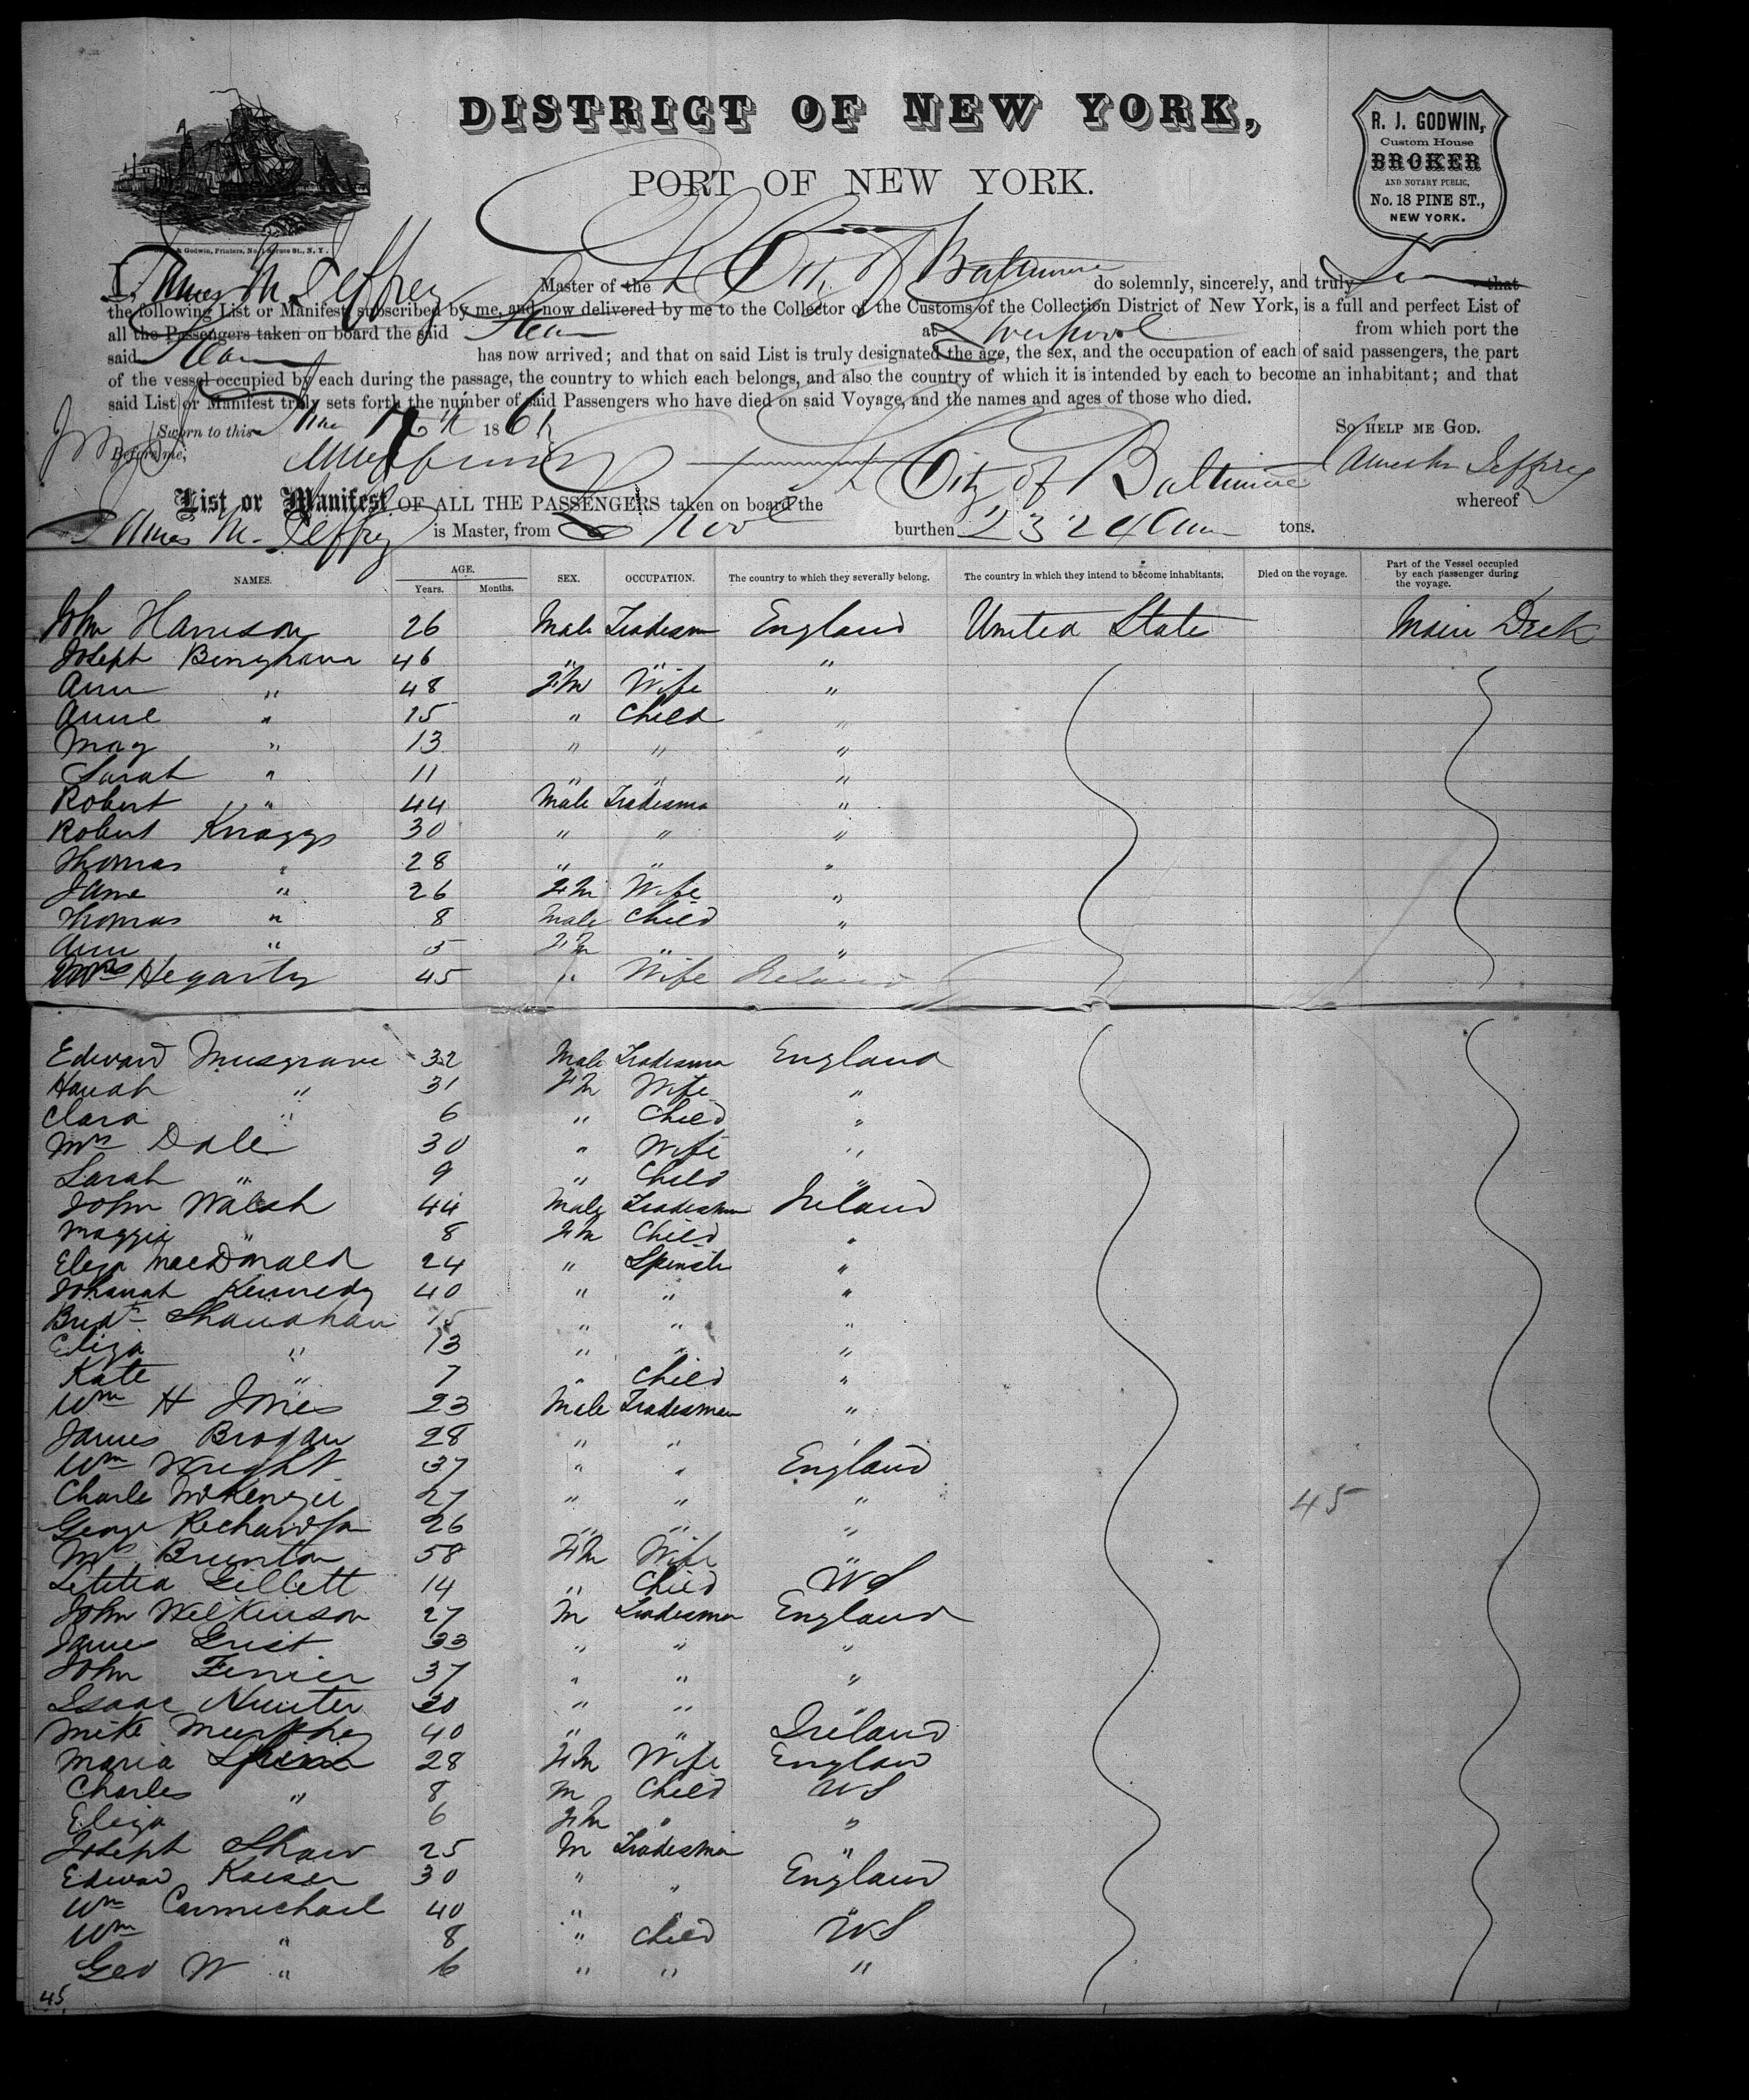 DISTRICT OF NEW YORK,
PORT OF NEW YORK.
R. J. GODWIN,
Custom House
BROKER
AND NOTARY PUBLIC,
No. 18 PINE ST.,
NEW YORK.
Godwin, Printers, N. Y.
I, James M. Jeffrey Master of the City of Baltimore do solemnly, sincerely, and truly that
the following List or Manifest, subscribed by me, and now delivered by me to the Collector of the Customs of the Collection District of New York, is a full and perfect List of
all the Passengers taken on board the said at Liverpool from which port the
said has now arrived; and that on said List is truly designated the age, the sex, and the occupation of each of said passengers, the part
of the vessel occupied by each during the passage, the country to which each belongs, and also the country of which it is intended by each to become an inhabitant; and that
said List or Manifest truly sets forth the number of said Passengers who have died on said Voyage, and the names and ages of those who died.
Sworn to this 186 SO HELP ME GOD.
Before me, Jeffrey
List or Manifest OF ALL THE PASSENGERS taken on board the City of Baltimore whereof
James M. Jeffrey is Master, from L'pool burthen 2324 tons.
NAMES. AGE. Years. Months. SEX. OCCUPATION. The country to which they severally belong. The country in which they intend to become inhabitants. Died on the voyage. Part of the Vessel occupied by each passenger during the voyage.
John Harrison 26 Male Tradesm England United State Main Deck
Joseph Bingham 46 " " "
Ann " 48 Fm Wife "
Anne " 15 " Child "
May " 13 " " "
Sarah " 11 " " "
Robert " 44 Male Tradesma "
Robert Knaggs 30 " " "
Thomas " 28 " " "
Jane " 26 Fm Wife "
Thomas " 8 Male Child "
Ann " 5 Fm " "
Mrs Hegarty 45 " Wife Ireland
Edward Musgrave 32 Male Tradesma England
Hanah " 31 Fm Wife "
Clara " 6 " Child "
Mrs Dale 30 " Wife "
Sarah " 9 " Child "
John Walsh 44 Male Tradesman Ireland
Maggie " 8 Fm Child "
Eliza MacDonald 24 " Spinst "
Johanah Kennedy 40 " " "
Bridt Shanahan 15 " " "
Eliza " 13 " " "
Kate " 7 " Child "
Wm H Jones 23 Male Tradesman "
James Brogan 28 " " "
Wm Wright 37 " " England
Charle McKenzie 27 " " " 45
George Richardson 26 " " "
Mrs Brunton 58 Fm Wife "
Letitia Gillett 14 " Child US
John Wilkinson 27 M Tradesman England
James Grist 33 " " "
John 37 " " "
Isaac Hunter 30 " " "
Mike Murphey 40 " " Ireland
Maria 28 Fm Wife Englan
Charles " 8 M Child US
Eliza 6 Fm " "
Joseph Shaw 25 M Tradesman "
Edward Kaiser 30 " " England
Wm Carmichael 40 "
Wm " 8 " Child US
Geo W " 6 " " "
45